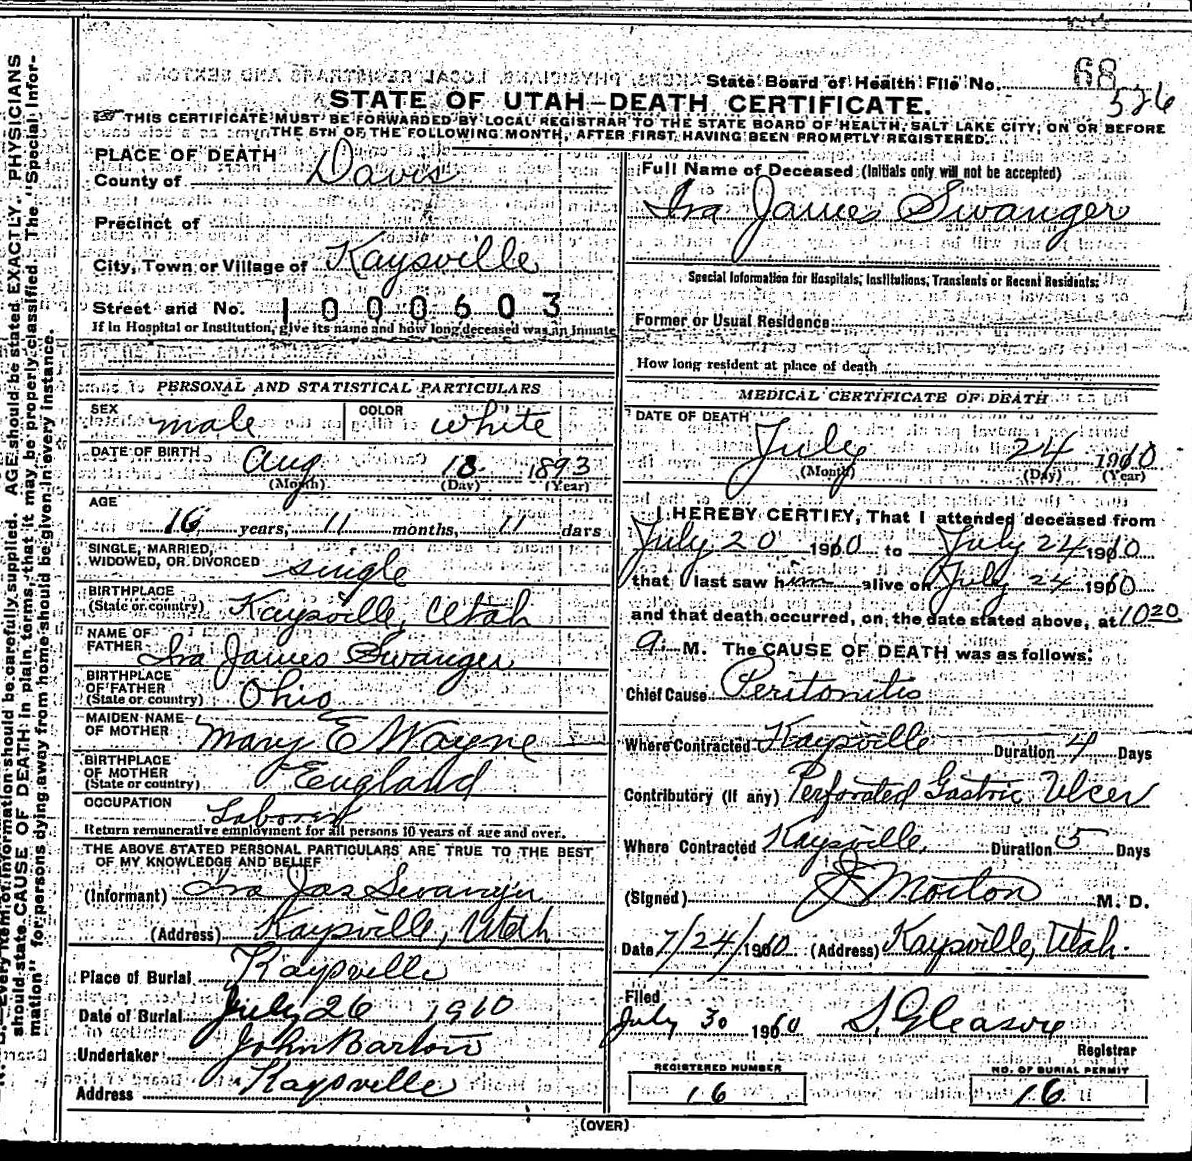 State Board of Health File No. 68
526
STATE OF UTAH—DEATH CERTIFICATE.
THIS CERTIFICATE MUST BE FORWARDED BY LOCAL REGISTRAR TO THE STATE BOARD OF HEALTH, SALT LAKE CITY, ON OR BEFORE
THE 5TH OF THE FOLLOWING MONTH, AFTER FIRST HAVING BEEN PROMPTLY REGISTERED.
PLACE OF DEATH
County of Davis
Precinct of
City, Town or Village of Kaysville
Street and No. 1000603
If in Hospital or Institution, give its name and how long deceased was an inmate
PERSONAL AND STATISTICAL PARTICULARS
SEX male COLOR white
DATE OF BIRTH Aug 18 1893
(Month) (Day) (Year)
AGE
16 years, 11 months, 11 days
SINGLE, MARRIED,
WIDOWED, OR DIVORCED single
BIRTHPLACE
(State or country) Kaysville, Utah
NAME OF
FATHER Ira James Swanger
BIRTHPLACE
OF FATHER
(State or country) Ohio
MAIDEN NAME
OF MOTHER Mary E Wayne
BIRTHPLACE
OF MOTHER
(State or country) England
OCCUPATION Laborer
Return remunerative employment for all persons 10 years of age and over.
THE ABOVE STATED PERSONAL PARTICULARS ARE TRUE TO THE BEST
OF MY KNOWLEDGE AND BELIEF
(Informant) Ira Jas Swanger
(Address) Kaysville, Utah
Place of Burial Kaysville
Date of Burial July 26 1910
Undertaker John Barton
Address Kaysville
Full Name of Deceased (Initials only will not be accepted)
Ira James Swanger
Special Information for Hospitals, Institutions, Transients or Recent Residents:
Former or Usual Residence
How long resident at place of death
MEDICAL CERTIFICATE OF DEATH
DATE OF DEATH
July 24 1910
(Month) (Day) (Year)
I HEREBY CERTIFY, That I attended deceased from
July 20 1910 to July 24 1910
that I last saw him alive on July 24 1910
and that death occurred, on the date stated above, at 10 20
a. M. The CAUSE OF DEATH was as follows:
Chief Cause Peritonitis
Where Contracted Kaysville Duration 4 Days
Contributory (If any) Perforated Gastric Ulcer
Where Contracted Kaysville Duration 5 Days
(Signed) J Morton M. D.
Date 7/24/1910 (Address) Kaysville, Utah.
Filed
July 30 1910 S. Gleason
Registrar
REGISTERED NUMBER NO. OF BURIAL PERMIT
16 16
(OVER)
Every item of information should be carefully supplied. AGE should be stated EXACTLY. PHYSICIANS
should state CAUSE OF DEATH in plain terms, that it may be properly classified. The "Special Infor-
mation" for persons dying away from home should be given in every instance.